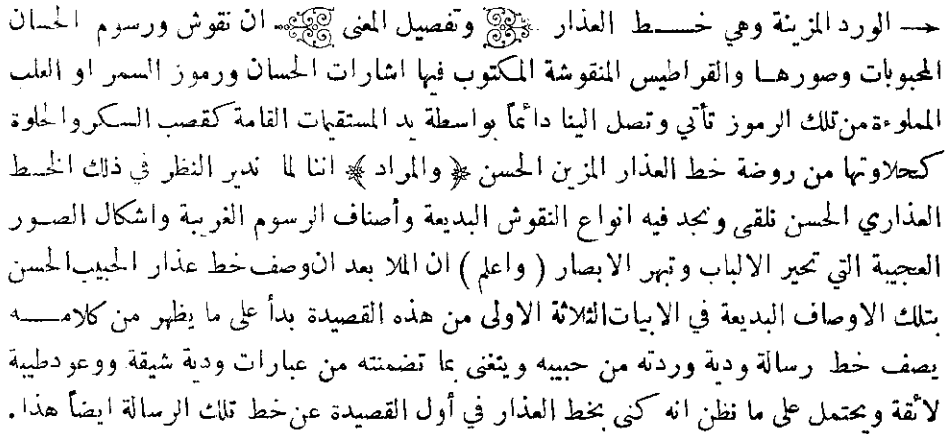 ـحـ الورد المزينة وهي خـــط العذار ﴿ وتفصيل المعنى ﴾ ان نقوش ورسوم الحسان
المحبوبات وصورهـا والقراطيس المنقوشة المكتوب فيها اشارات الحسان ورموز السمر او العلب
المملوءة من تلك الرموز تأتي وتصل الينا دائماً بواسطة يد المستقيمات القامة كقصب السكر والحلوة
كحلاوتها من روضة خط العذار المزين الحسن ﴿ والمراد ﴾ اننا لما ندير النظر في ذلك الخـط
العذاري الحسن نلقى ونجد فيه انواع النقوش البديعة وأصناف الرسوم الغريبة واشكال الصـور
العجيبة التي تحير الالباب وتبهر الابصار ( واعلم ) ان الملا بعد ان وصف خط عذار الحبيب الحسن
بتلك الاوصاف البديعة في الابيات الثلاثة الاولى من هذه القصيدة بدأ على ما يظهر من كلامـــه
يصف خط رسالة ودية وردته من حبيبه ويتغنى بما تضمنته من عبارات ودية شيقة ووعود طيبة
لائقة ويحتمل على ما نظن انه كنى بخط العذار في أول القصيدة عن خط تلك الرسالة ايضاً هذا .